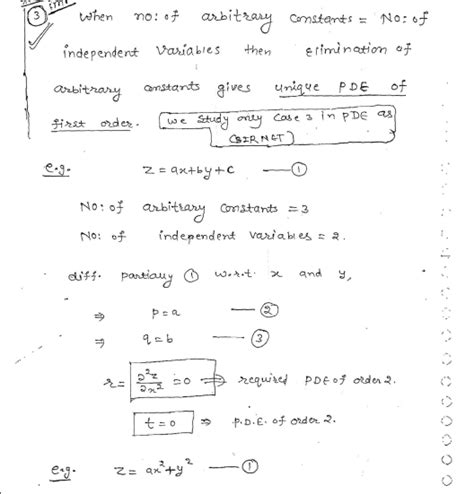 ③ imp. when no: of arbitrary constants = No: of
independent variables then elimination of
arbitrary constants gives unique PDE of
first order. [we study only case 3 in PDE as
CSIR NET]
e.g. z = ax+by+c —①
No: of arbitrary constants = 3
No: of independent variables = 2.
diff. partially ① w.r.t. x and y,
⇒ p=a —②
⇒ q=b —③
r = ∂²z/∂x² = 0 ⇒ required PDE of order 2.
t=0 ⇒ P.D.E. of order 2.
e.g. z = ax²+y² —①